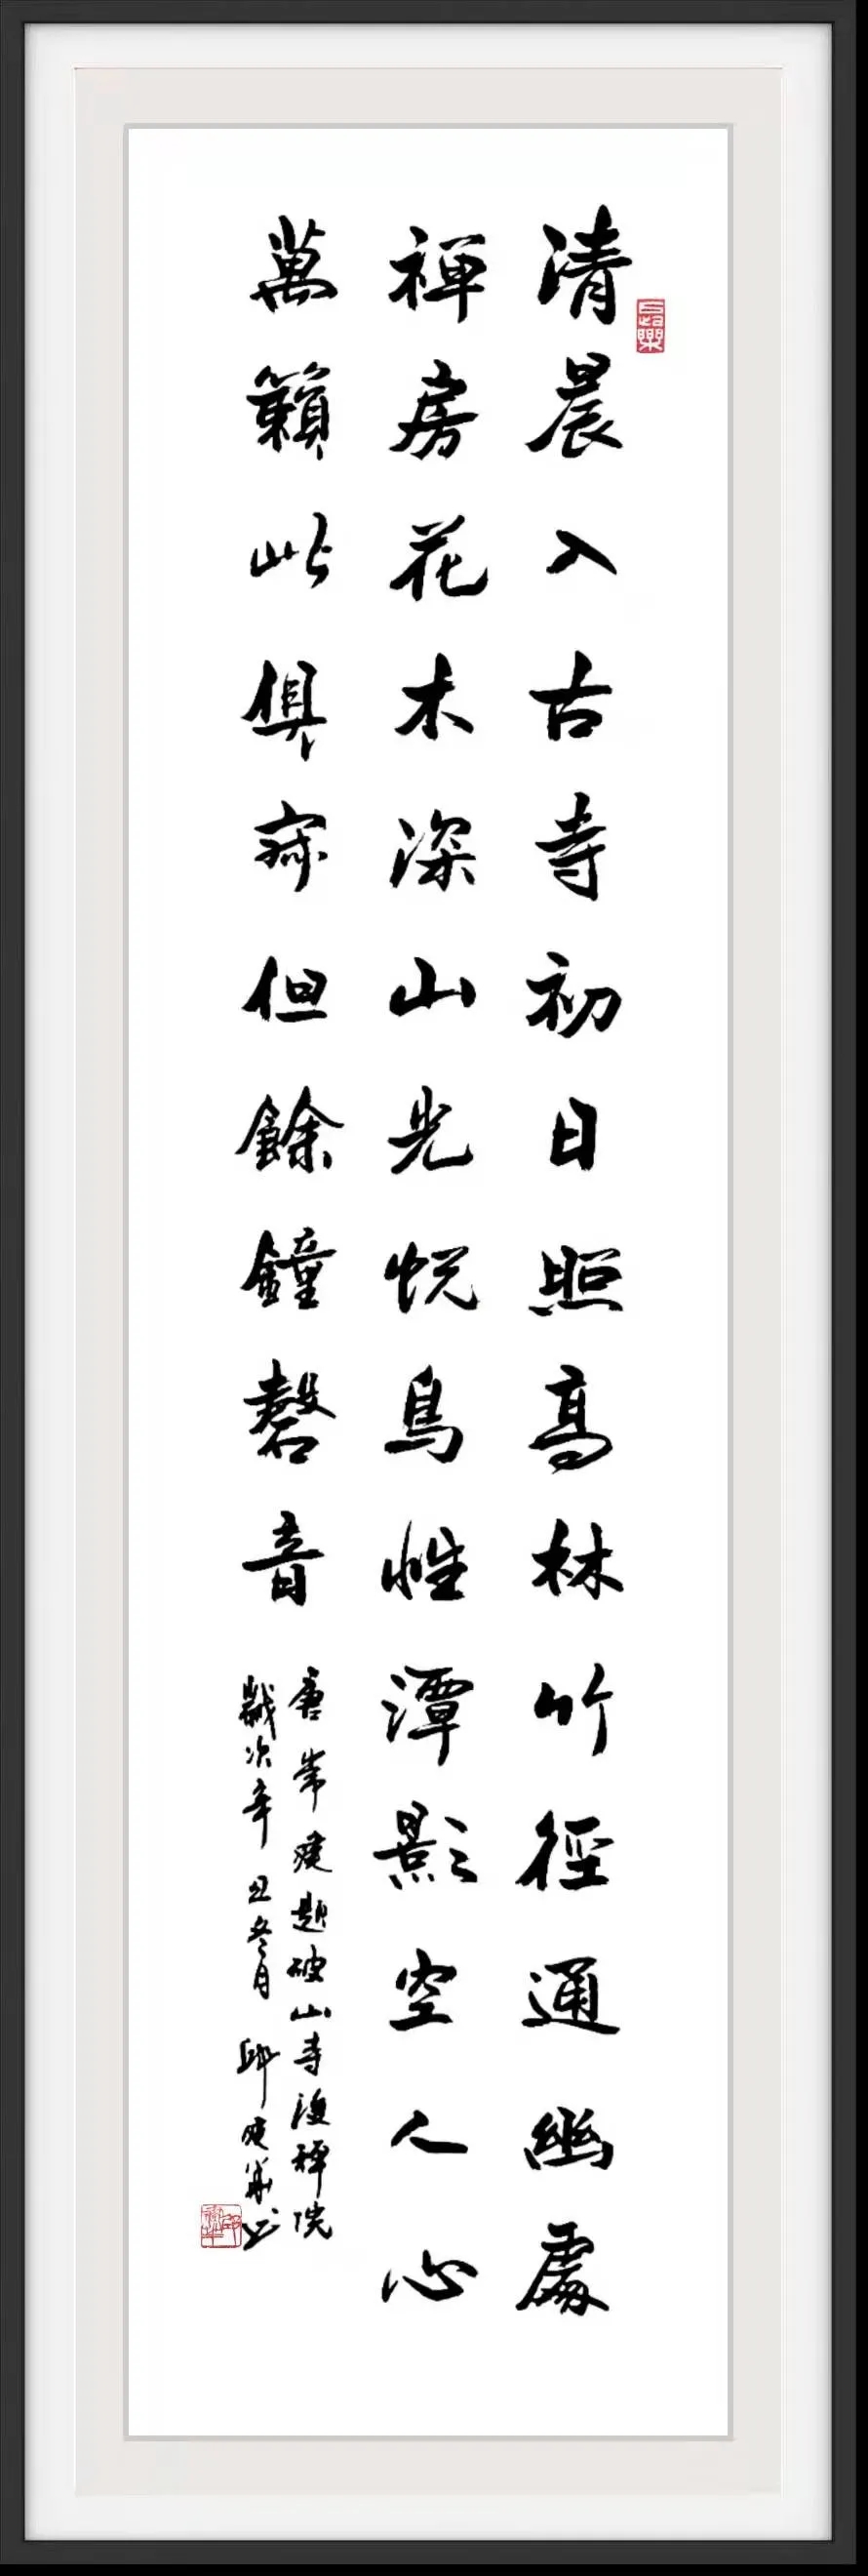 清晨入古寺初日照高林竹徑通幽處
禪房花木深山光悅鳥性潭影空人心
萬籟此俱寂但餘鐘磬音
唐常建題破山寺後禪院
歲次辛丑冬月邱 華书